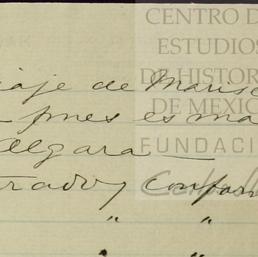 CENTRO DE
ESTUDIOS
DE HISTOR
DE MEXIC
FUNDACI
iaje de Maris
pues es ma
llegara
trado y compan
" "